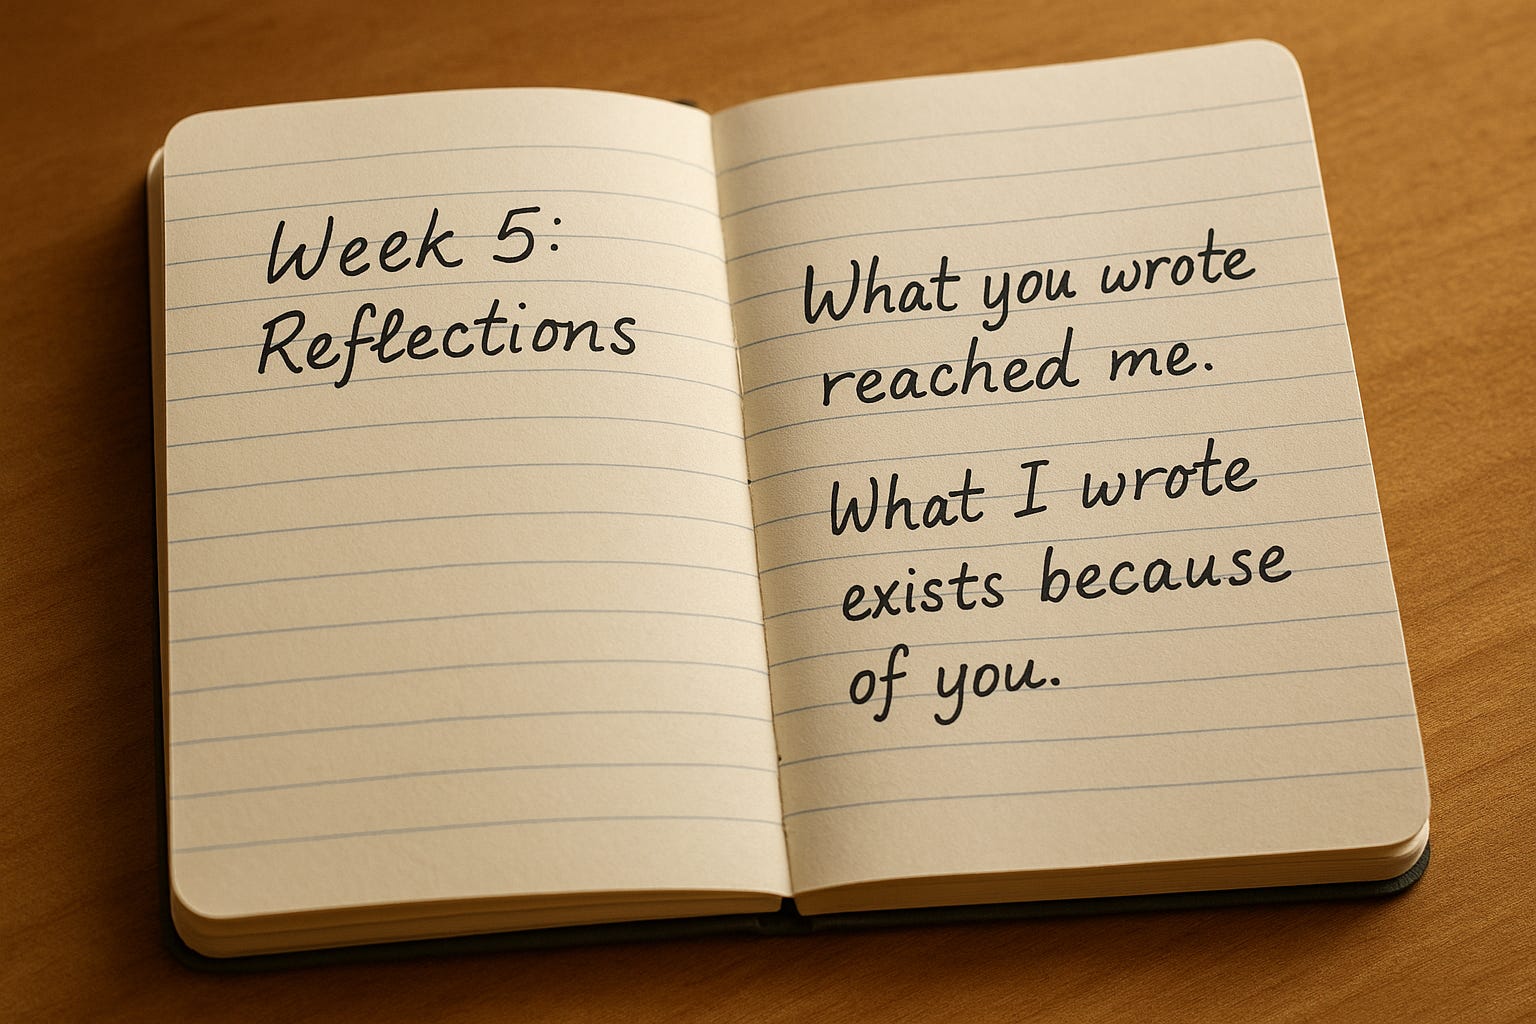 Week 5:
Reflections
What you wrote
reached me.
What I wrote
exists because
of you.